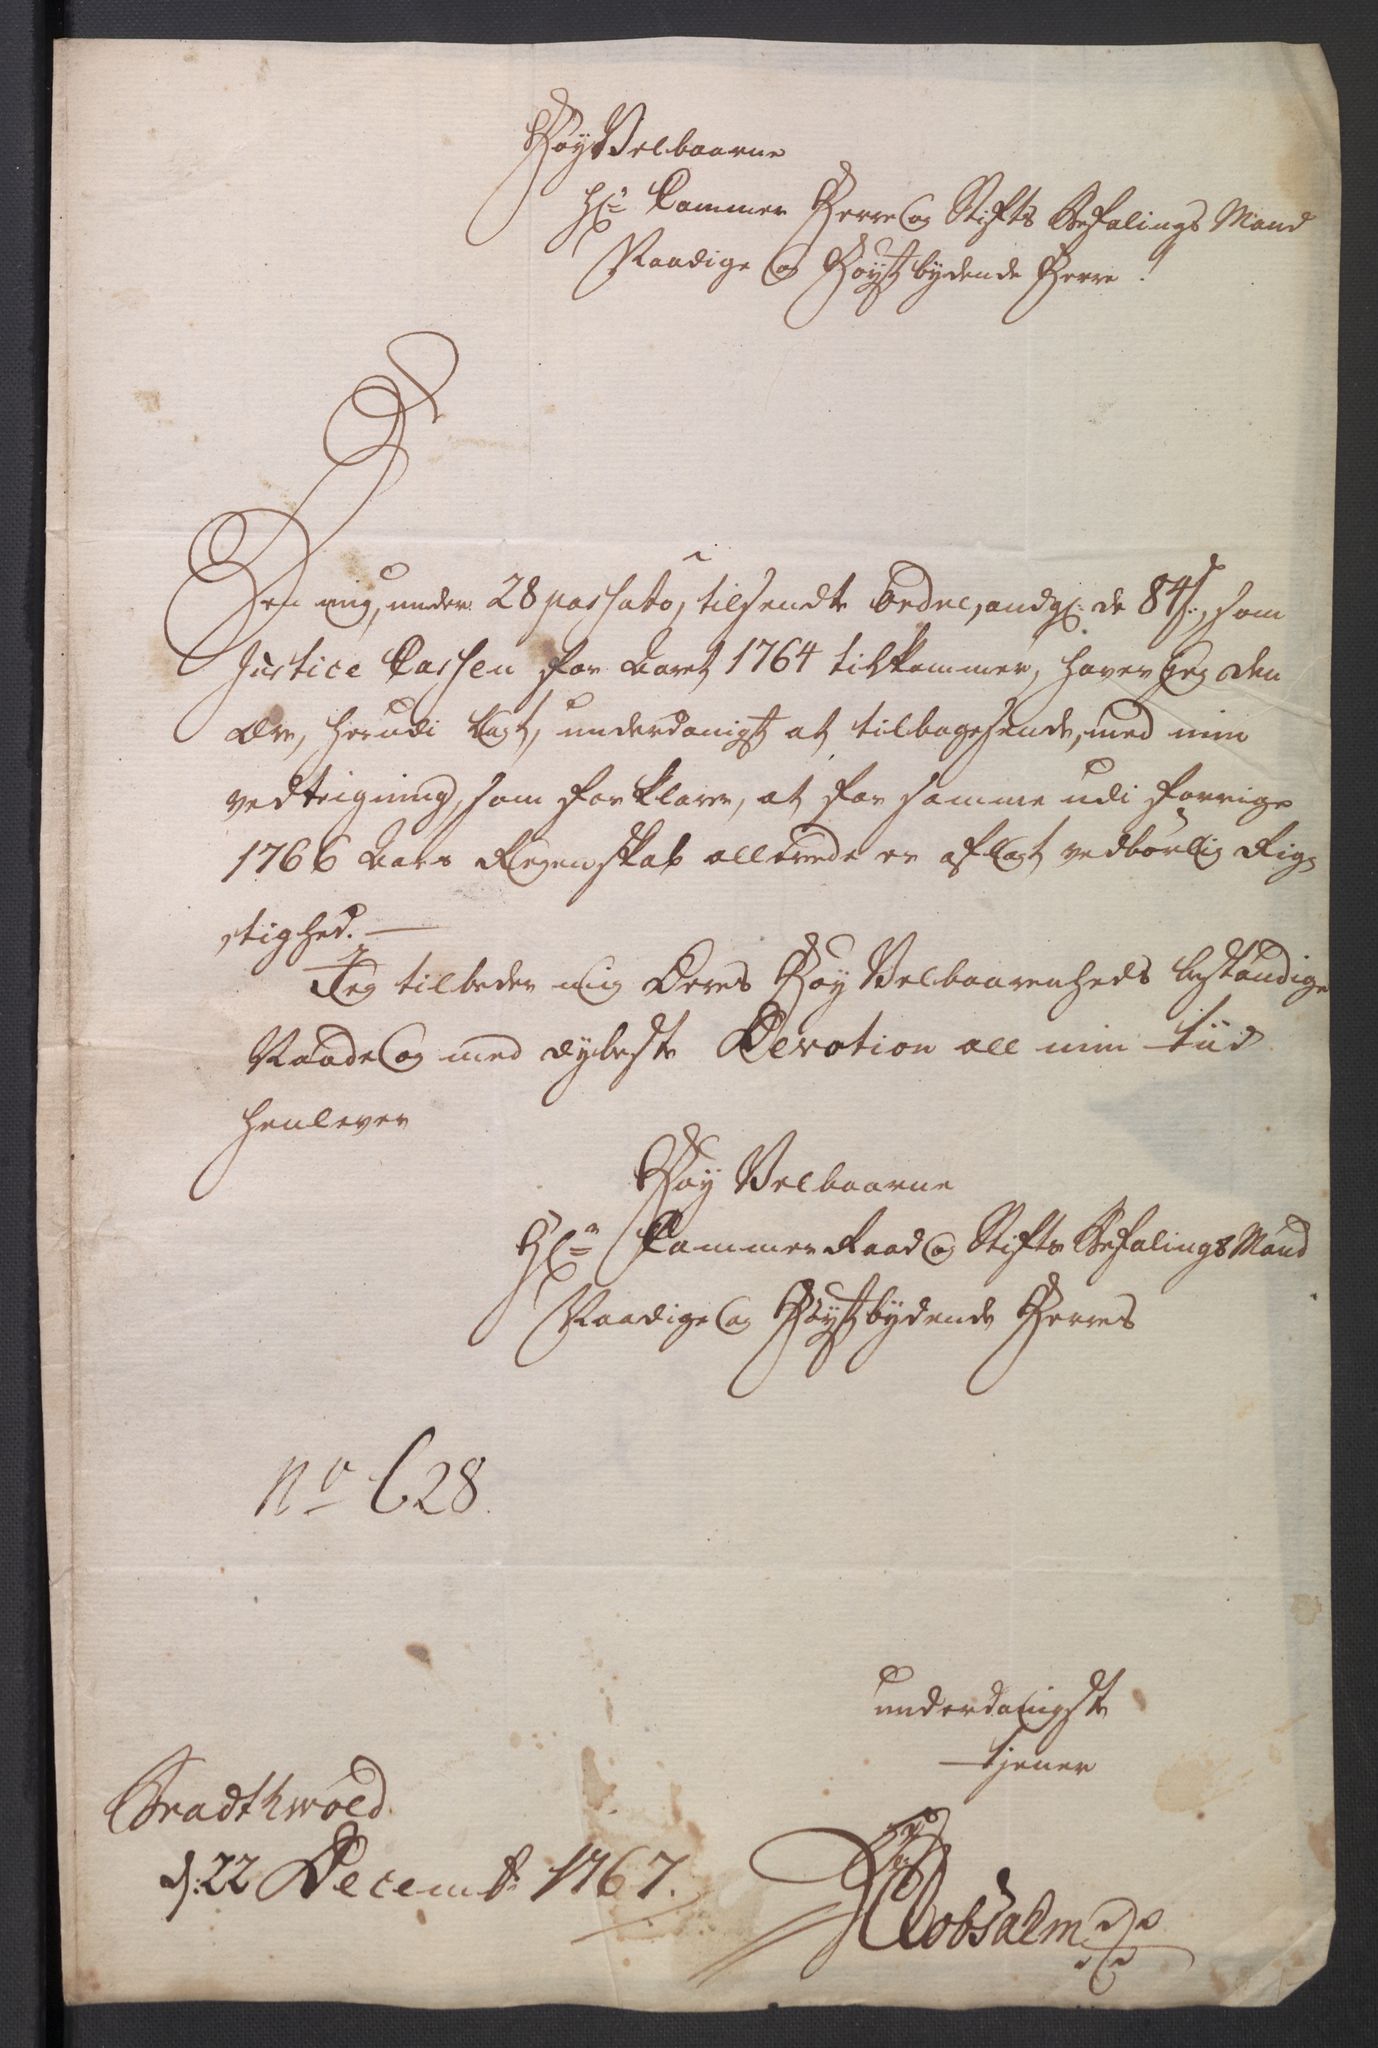 HøyVelbaarne
Hr: Cammer Herre og Stifts Befalings Mand
Naadige og Høystbydende Herre!
Den mig, under 28 passato, tilsendte Ordre, andg: de 84 s:, som
Justice Cassen for Aaret 1764 tilkommer, haver jeg den
Ære, herudi lagt, underdanigst at tilbagesende, med min
vedteigning, som forklarer, at for samme udi forrige
1766 Aars Regenskab allereede er aflagt vedbørlig Rig-
tighed. —
Jeg tilbeder mig Deres Høy Velbaarenheds bestændige
Naade og med dybeste Devotion all min tiid
henlever
Høy Velbaarne
Hr: Cammer Raad og Stifts Befalings Mand
Naadige og Høystbydende Herres
No 628.
underdanigste
tjener
d: 22 Decembr: 1767.